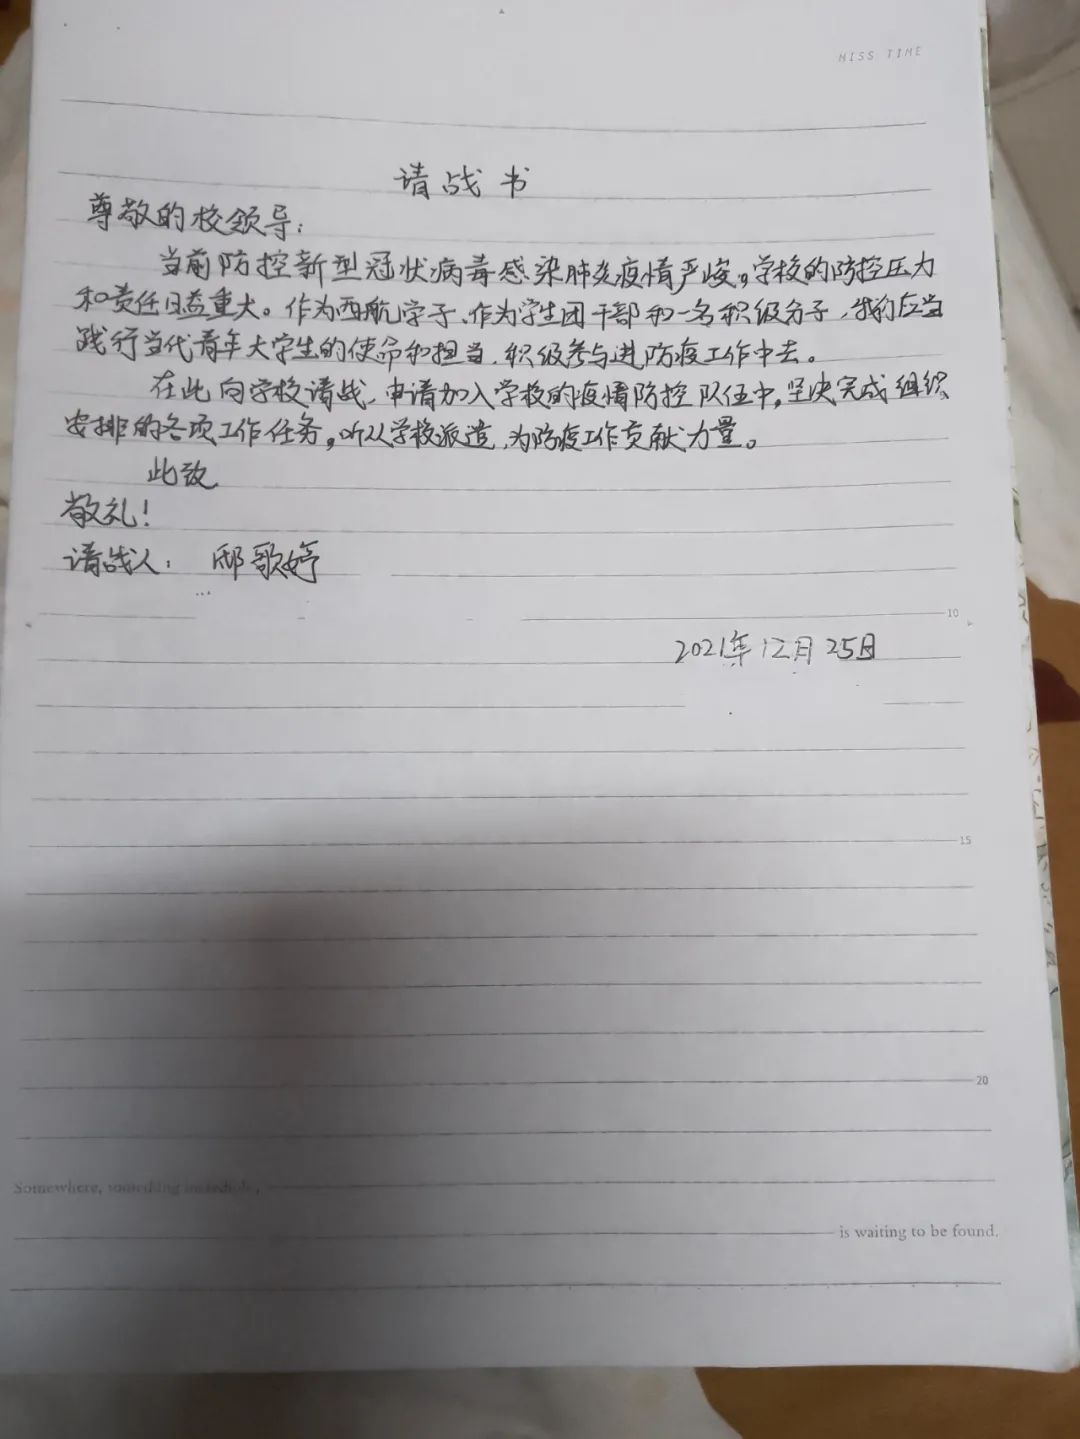 MISS TIME
请战书
尊敬的校领导：
当前防控新型冠状病毒感染肺炎疫情严峻，学校的防控压力
和责任日益重大。作为西航学子、作为学生团干部和一名积极分子，我们应当
践行当代青年大学生的使命和担当，积极参与进防疫工作中去。
在此向学校请战，申请加入学校的疫情防控队伍中，坚决完成组织
安排的各项工作任务，听从学校派遣，为防疫工作贡献力量。
此致
敬礼！
请战人： 邸歌婷
10
2021年12月25日
15
20
Somewhere, something incredible,
is waiting to be found.